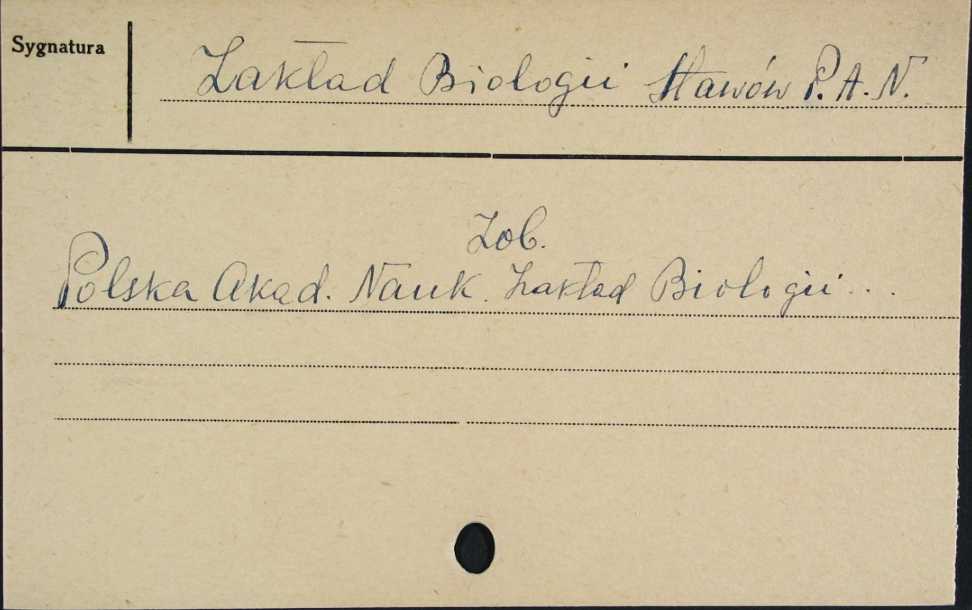 Sygnatura
Zakład Biologii Stawów P.A.N.
Zob.
Polska Akad. Nauk. Zakład Biologii...